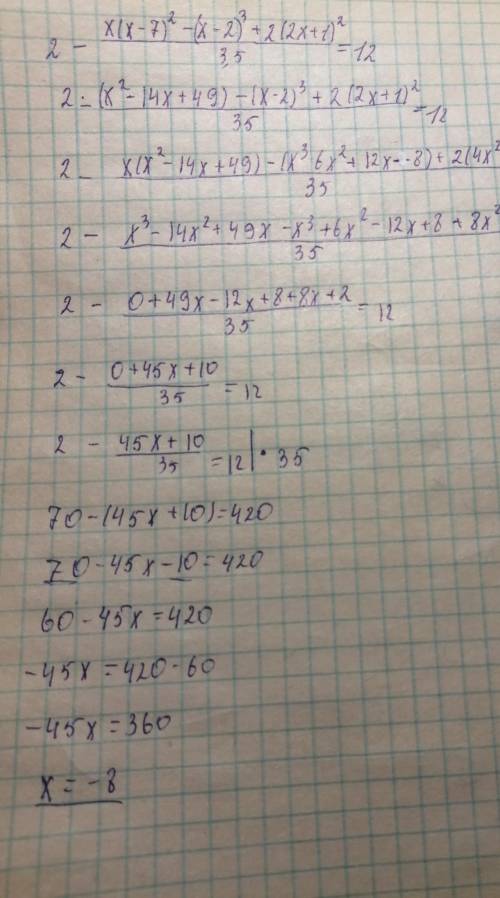 2 - (x(x-7)² - (x-2)³ + 2(2x+1)²)/3,5 = 12
2 - (x² - 14x + 49) - (x-2)³ + 2(2x+1)²/35 = 12
2 - x(x² - 14x + 49) - (x³ 6x² + 12x - - 8) + 2(4x²/35
2 - x³ - 14x² + 49x - x³ + 6x² - 12x + 8 + 8x²/35
2 - 0 + 49x - 12x + 8 + 8x + 2/35 = 12
2 - 0 + 45x + 10/35 = 12
2 - 45x + 10/35 = 12 | · 35
70 - (45x + 10) = 420
70 - 45x - 10 = 420
60 - 45x = 420
-45x = 420 - 60
-45x = 360
x = -8